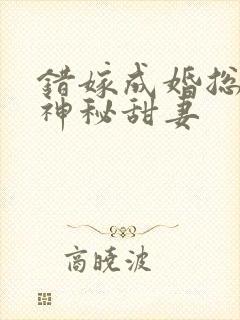 错嫁成婚总
神秘甜妻
高晓波